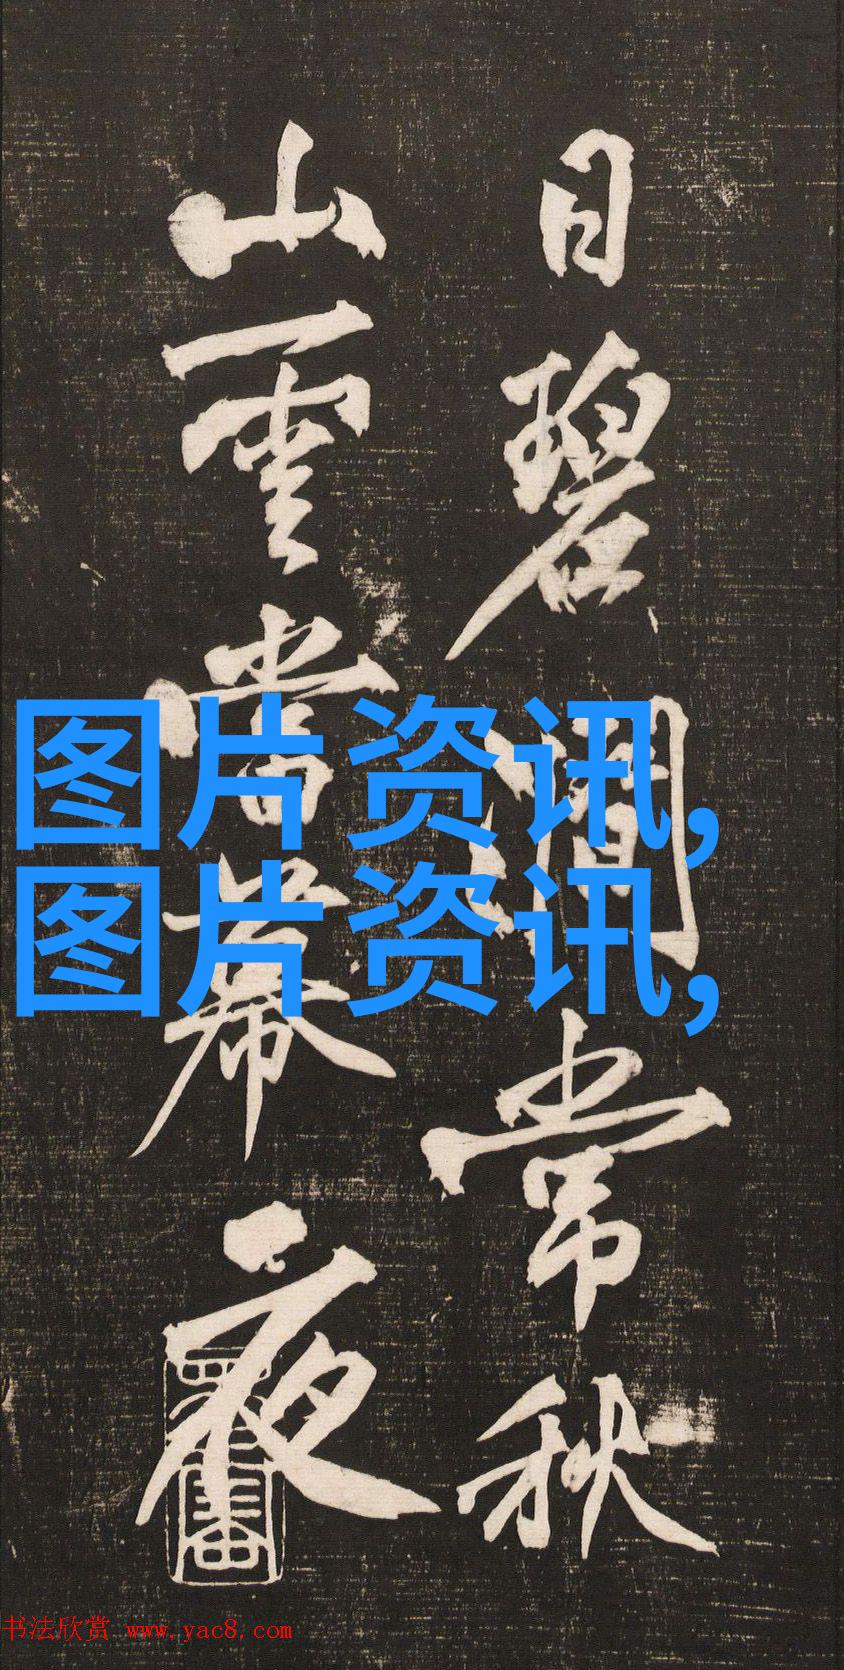 日碧澗常秋
山雲當幕夜
图片资讯,
图片资讯,
书法欣赏 www.yac8.com